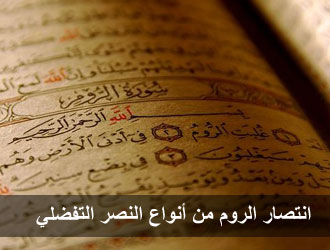 لَنَهْدِيَنَّهُمْ سُبُلَنَا وَإِنَّ اللَّهَ لَمَعَ
سُورَةُ الرُّومِ
اللَّهِ الرَّحْمَٰنِ الرَّحِيمِ
غُلِبَتِ الرُّومُ ٢ فِي أَدْنَى الْأَرْضِ وَهُم
سَيَغْلِبُونَ ٣ فِي بِضْعِ سِنِينَ
بَعْدُ وَيَوْمَئِذٍ
انتصار الروم من أنواع النصر التفضلي